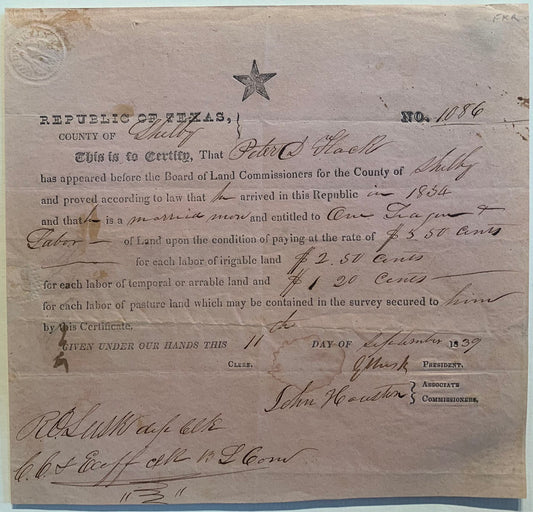 FKR
REPUBLIC OF TEXAS, } NO. 1086
COUNTY OF Shelby
This is to Certify, That Peter D Flack
has appeared before the Board of Land Commissioners for the County of Shelby
and proved according to law that he arrived in this Republic in 1834
and that he is a married man and entitled to One League &
Labor — of Land upon the condition of paying at the rate of $3.50 Cents
— for each labor of irigable land $2.50 Cents
for each labor of temporal or arrable land and $1 20 Cents —
for each labor of pasture land which may be contained in the survey secured to him
by this Certificate.
GIVEN UNDER OUR HANDS THIS 11th DAY OF September 1839
CLERK. PRESIDENT.
John Houston } ASSOCIATE
COMMISSIONERS.
R O Lusk dep Clk
C. C. & clk B L Com